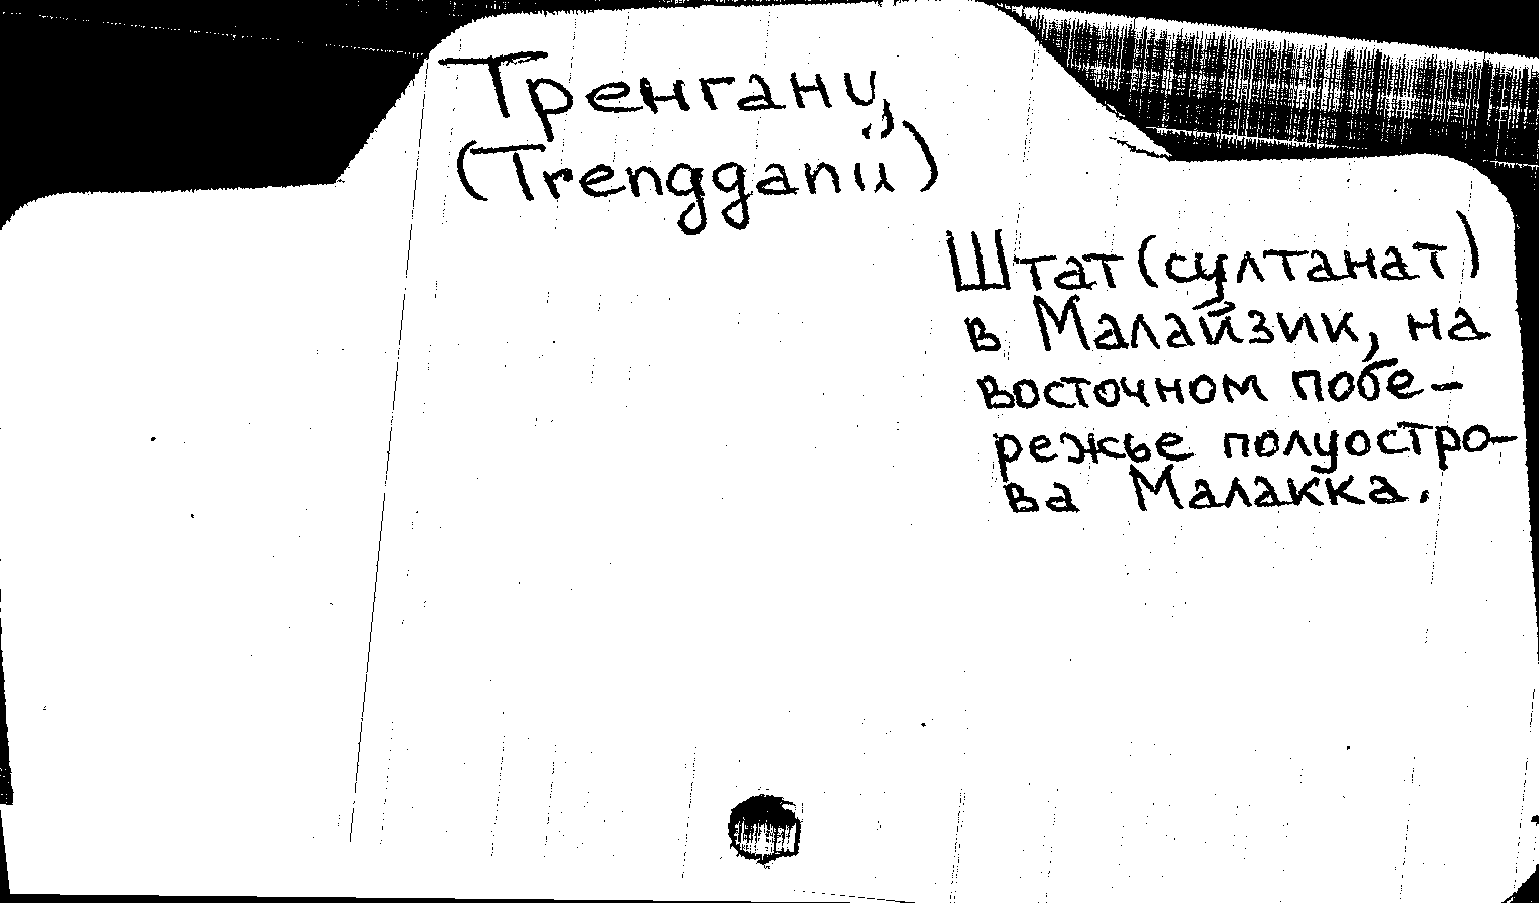 Тренгану,
(Trengganu)
Штат (султанат)
в Малайзик, на
восточном побе-
режье полуостро-
ва Малакка.